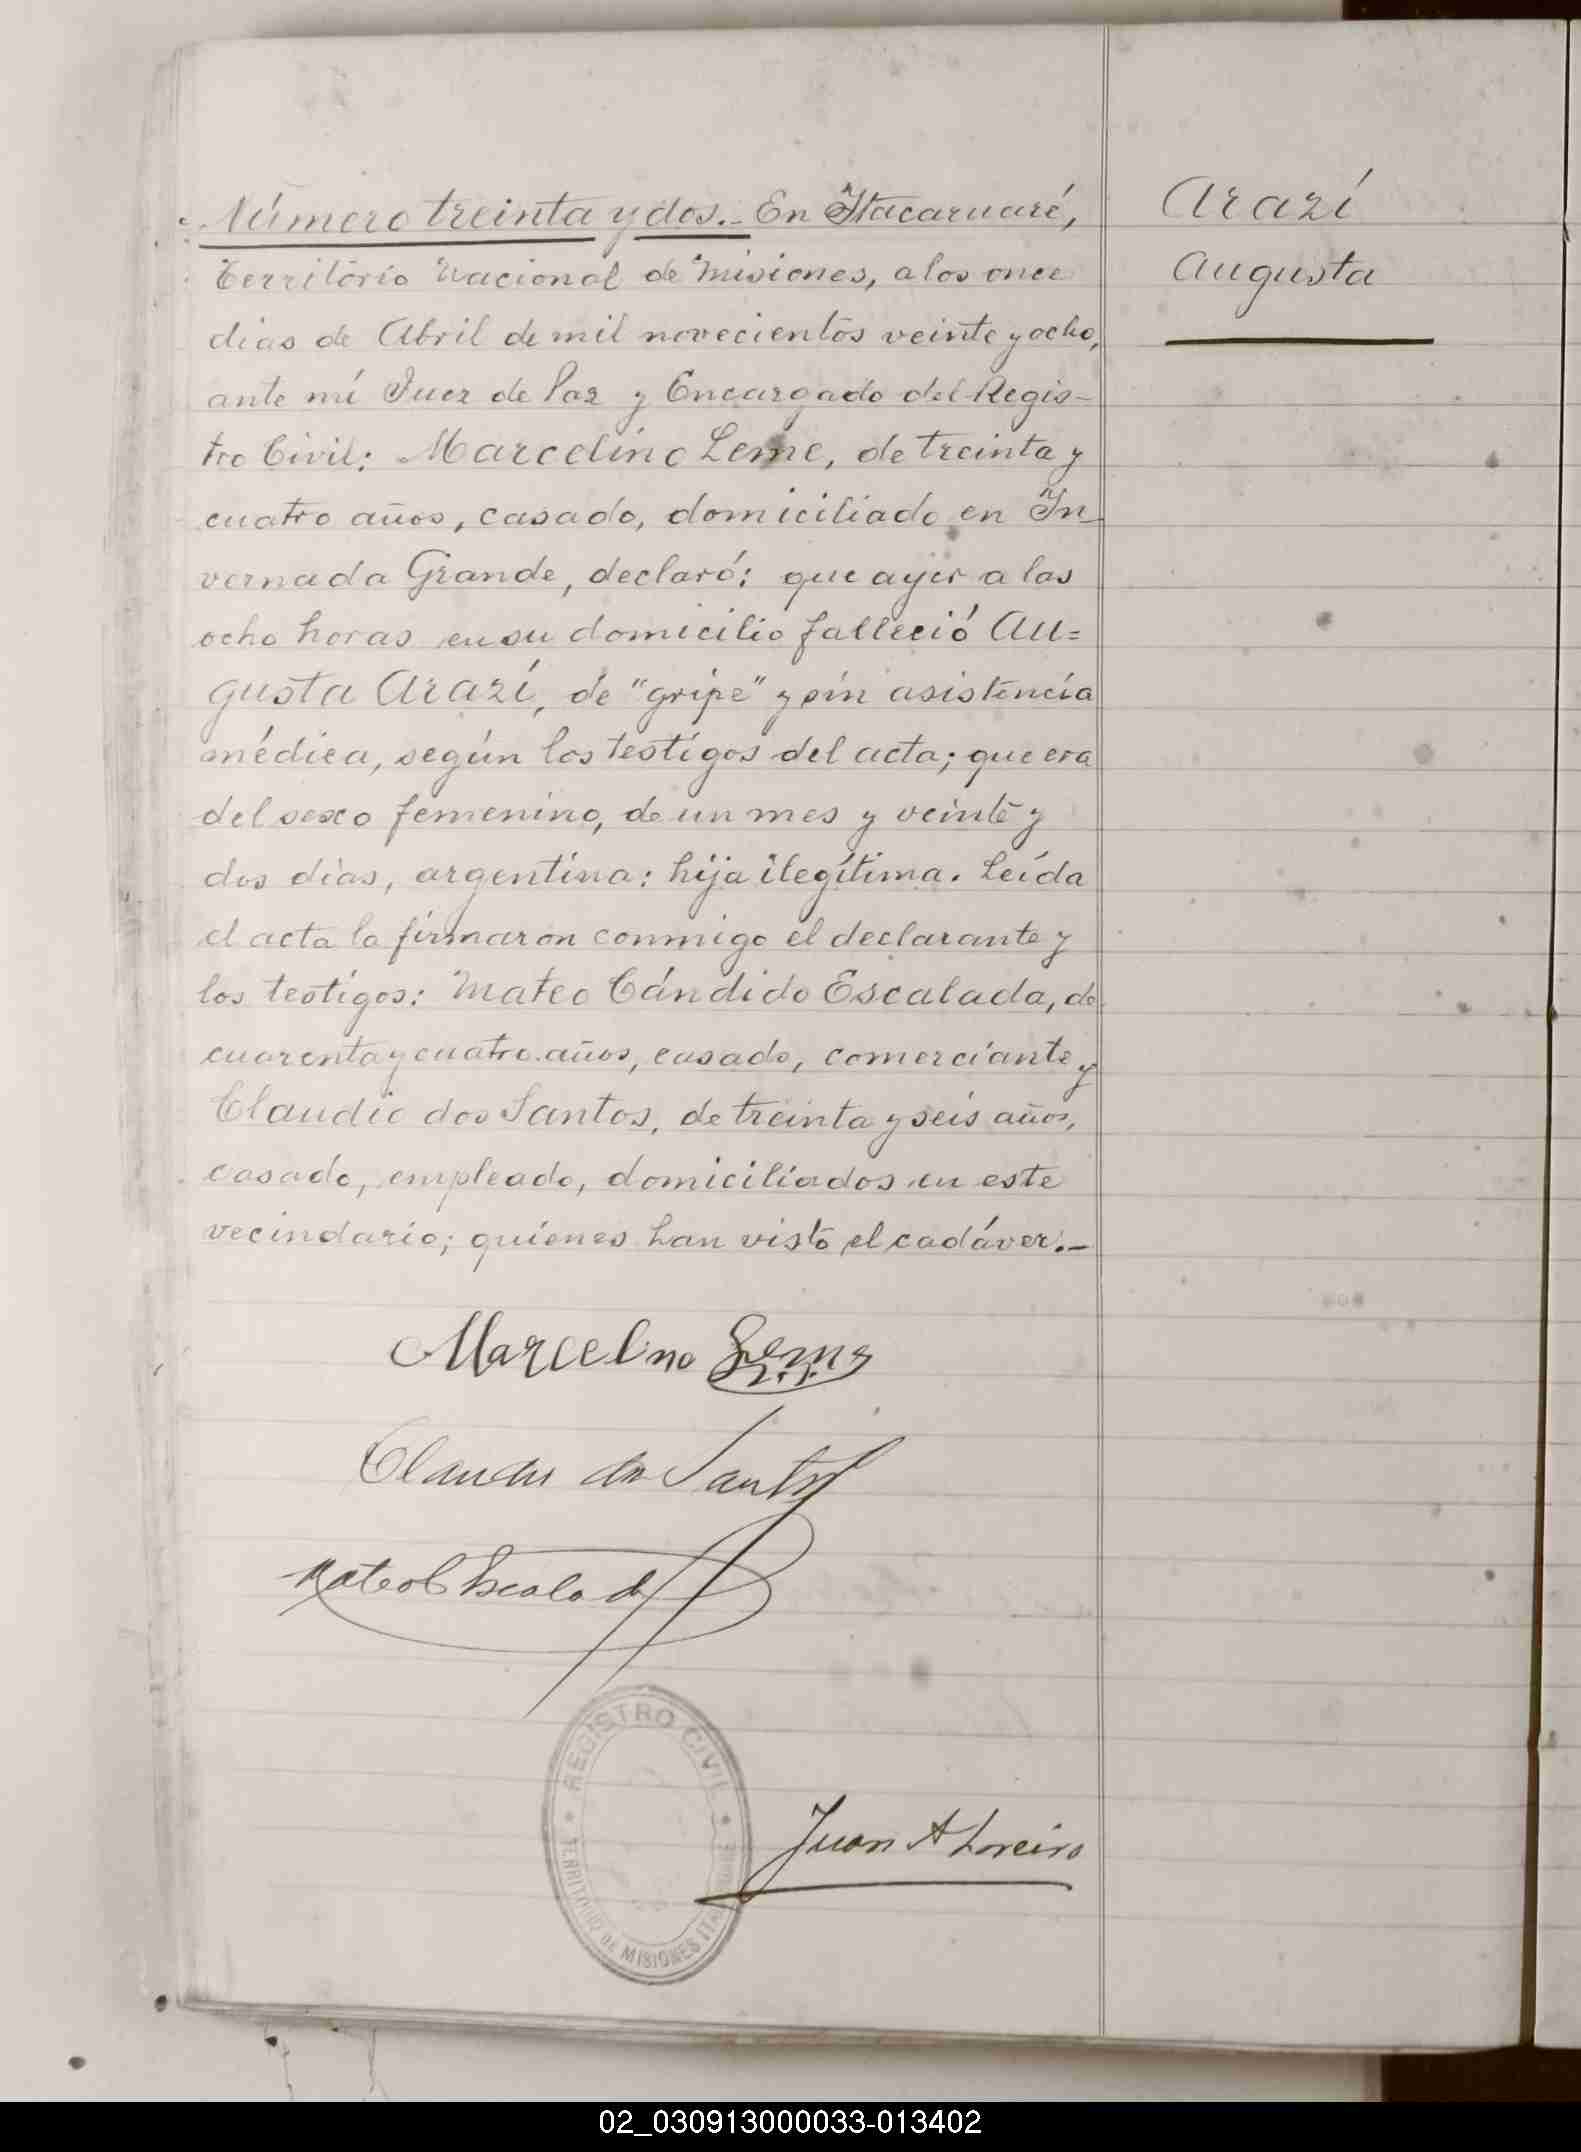 Número treinta y dos.- En Itacaruaré,
Territorio Nacional de Misiones, a los once
dias de Abril de mil novecientos veinte y ocho,
ante mí Juez de Paz y Encargado del Regis-
tro Civil: Marcelino Leme, de treinta y
cuatro años, casado, domiciliado en In-
vernada Grande, declaró: que ayer a las
ocho horas en su domicilio falleció Au=
gusta Arazí, de "gripe" y sin asistencia
médica, según los testigos del acta; que era
del sexo femenino, de un mes y veinte y
dos dias, argentina: hija ilegítima. Leída
el acta la firmaron conmigo el declarante y
los testigos: Mateo Cándido Escalada, de
cuarenta y cuatro años, casado, comerciante y
Claudio dos Santos, de treinta y seis años,
casado, empleado, domiciliados en este
vecindario; quienes han visto el cadáver.-
Arazí
Augusta
Marcelino Leme
Claudio dos Santos
Mateo C Escalada
REGISTRO CIVIL
TERRITORIO DE MISIONES
Juan A Loreiro
02_030913000033-013402